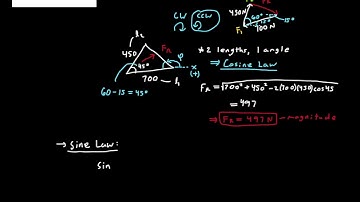 CW CCW
450N
F₁
60°
15°
700N
l₂
450
F_R
45°
φ
x
(+)
700 l₁
60-15=45°
*2 lengths, 1 angle
→ Cosine Law
F_R = √700² + 450² - 2(700)(450)cos45
= 497
⇒ F_R = 497 N - magnitude
→ Sine Law:
sin